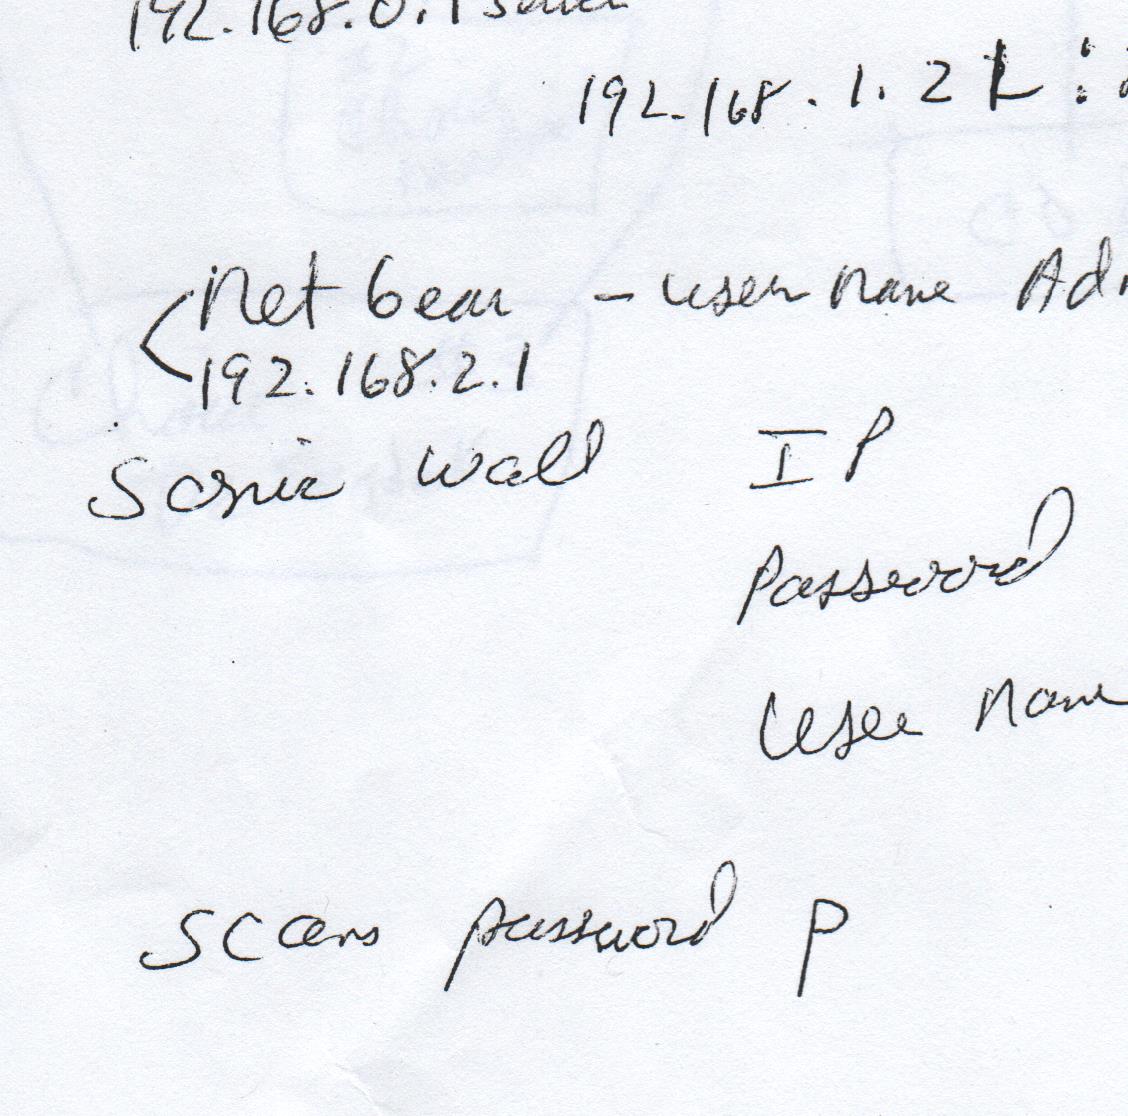 192.168.0.1
192.168.1.2 L :
Net Gear - user name Ad
192.168.2.1
Sonic wall IP
Password
User Name
Scans password P